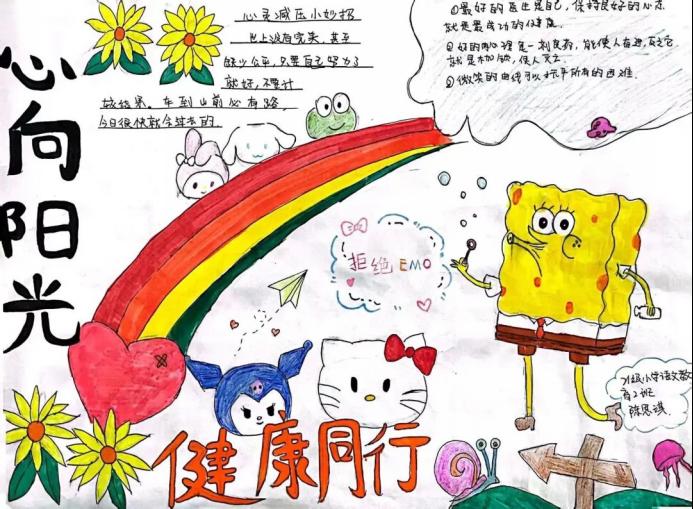 心向阳光
心灵减压小妙招
世上没有完美,甚至
缺少公平,只要自己努力了
就好,不要计
较结果。车到山前必有路,
今日很快就会过去的
①最好的医生是自己,保持良好的心态
就是最成功的健康
②好的心理是一剂良药,能使人奋进,反之它
就是木枷锁,使人灭亡。
③微笑的曲线可以扯平所有的困难
拒绝EMO
21级小学语文教
育2班
陈思祺
健康同行